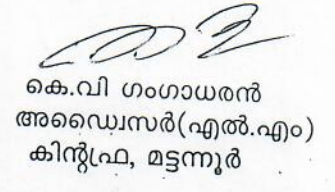 കെ.വി ഗംഗാധരൻ
അഡ്വൈസർ(എൽ.എം)
കിൻഫ്ര, മട്ടന്നൂർ